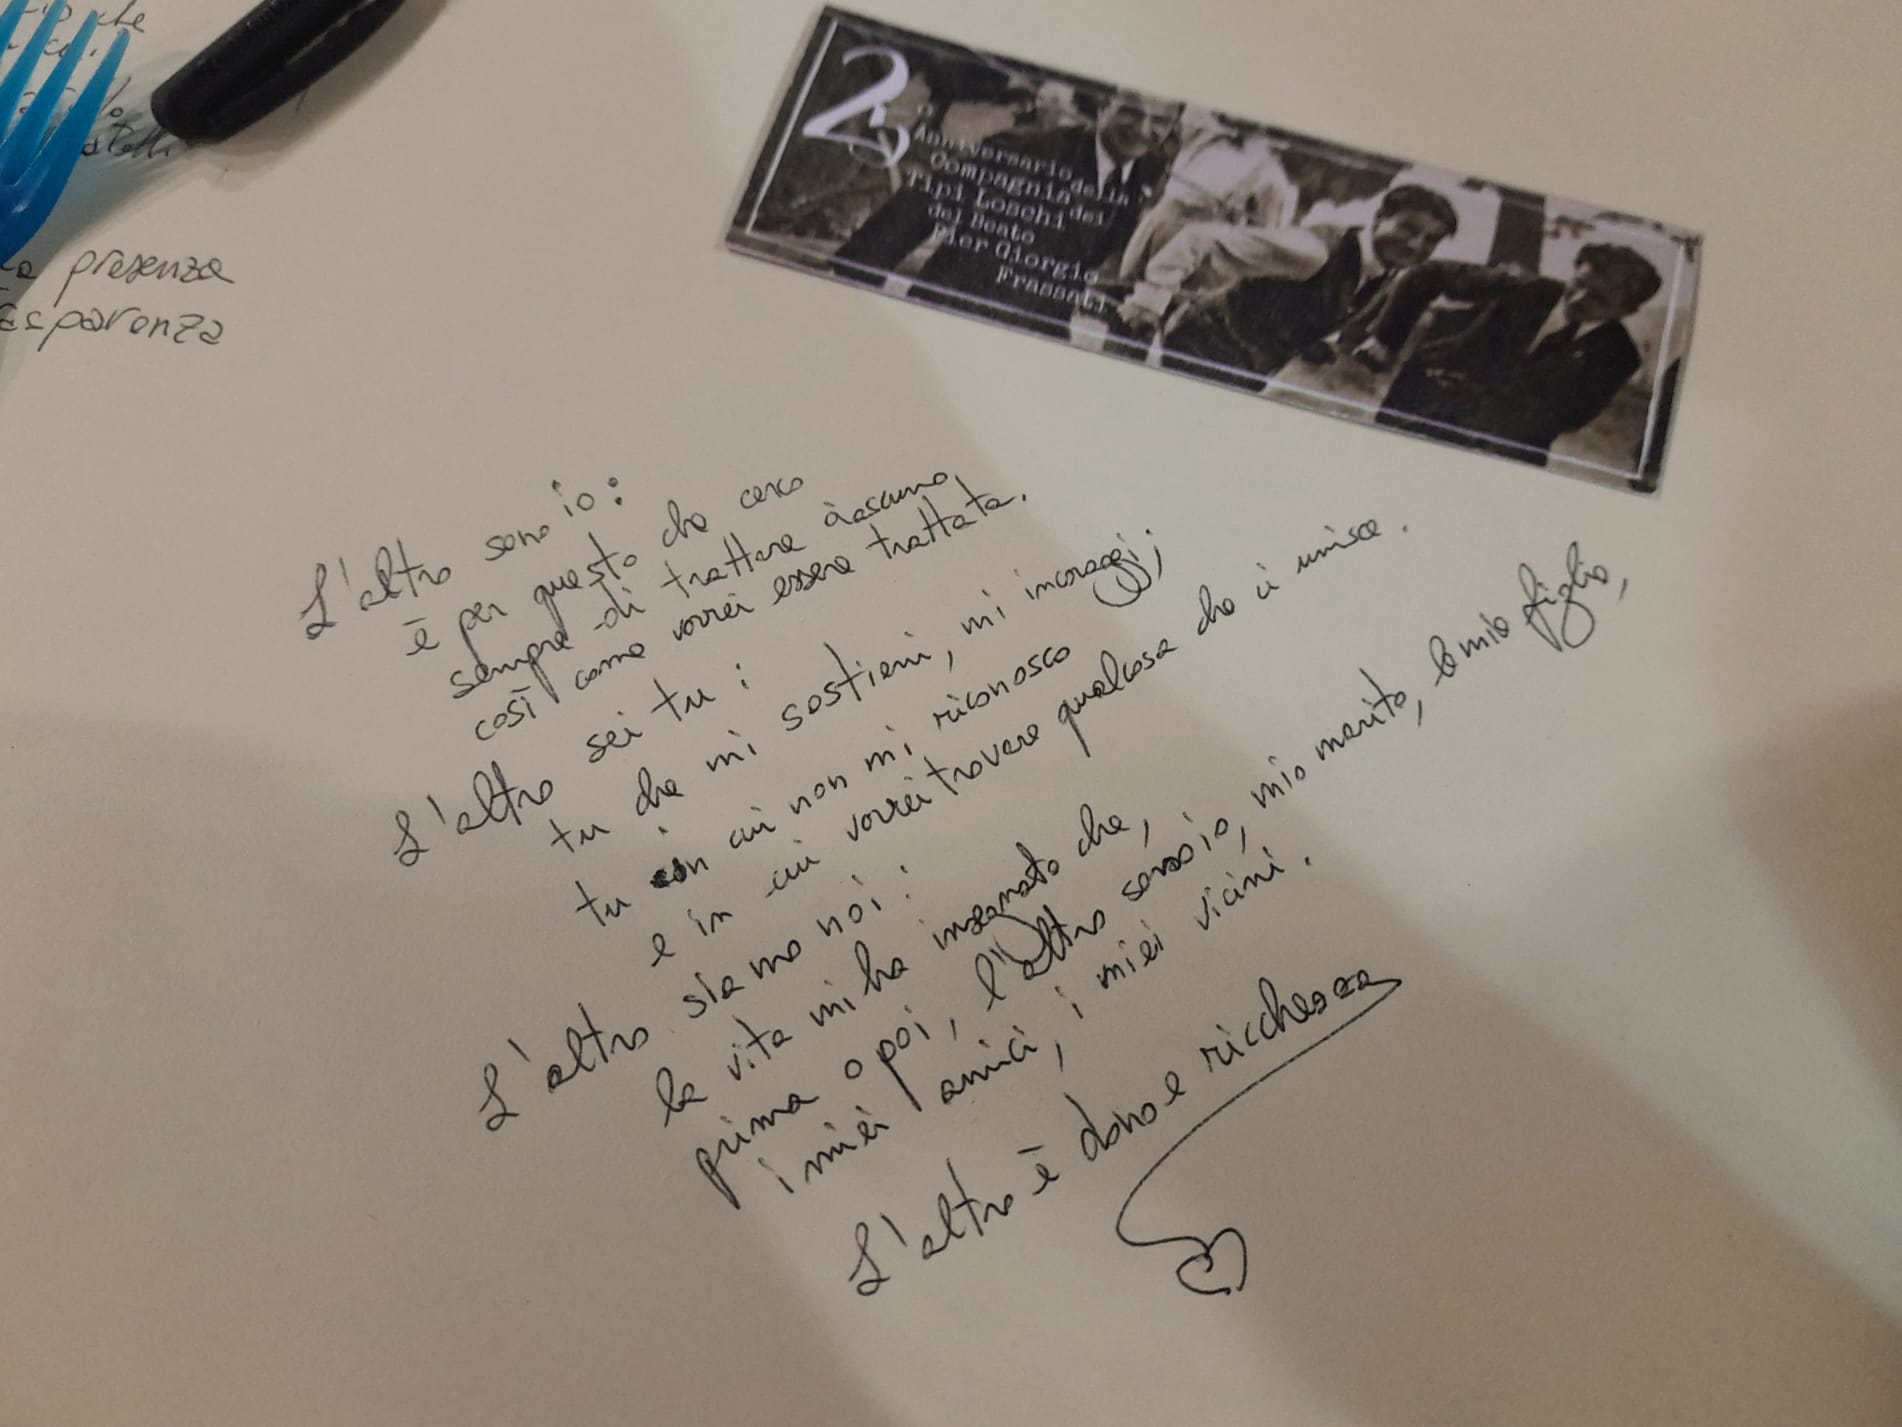 che
presenza
asparenza
25
Anniversario della
Compagnia dei
Tipi Loschi
del Beato
Pier Giorgio
Frassati
L'altro sono io:
è per questo che cerco
sempre di trattare ciascuno,
così come vorrei essere trattata.
L'altro sei tu:
tu che mi sostieni, mi incoraggi;
tu in cui non mi riconosco
e in cui vorrei trovare qualcosa che ci unisce.
L'altro siamo noi:
la vita mi ha insegnato che,
prima o poi, l'altro sono io, mio marito, la mia figlia,
i miei amici, i miei vicini.
L'altro è dono e ricchezza